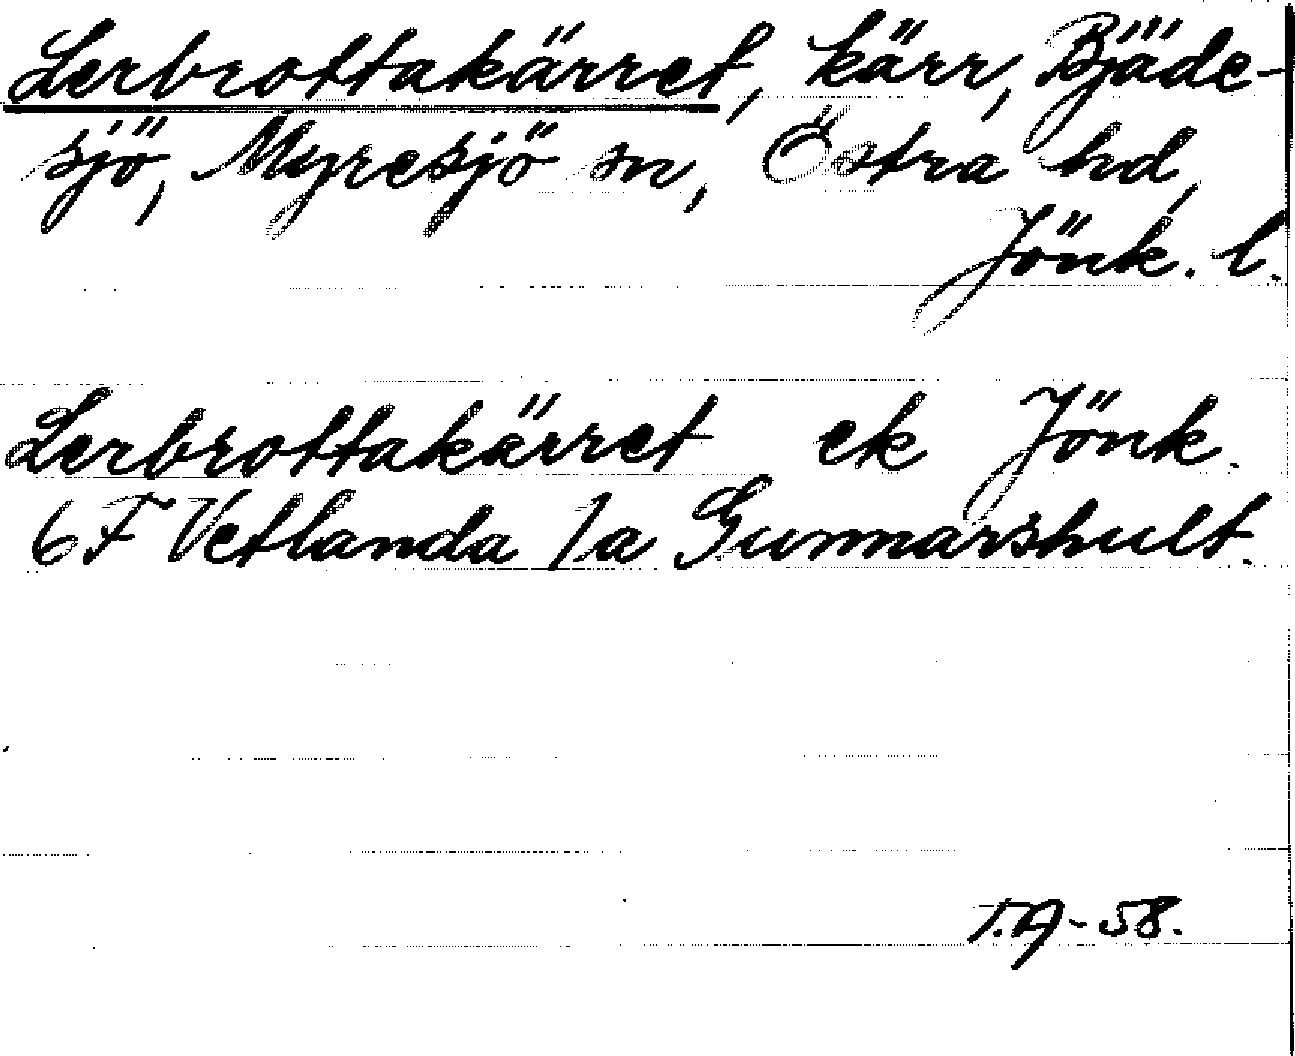 Lerbrottakärret, kärr, Bjäde-
sjö, Myresjö sn, Östra hd,
Jönk. l.
Lerbrottakärret ek Jönk.
6F Vetlanda 1a Gunnarshult.
T.A-58.